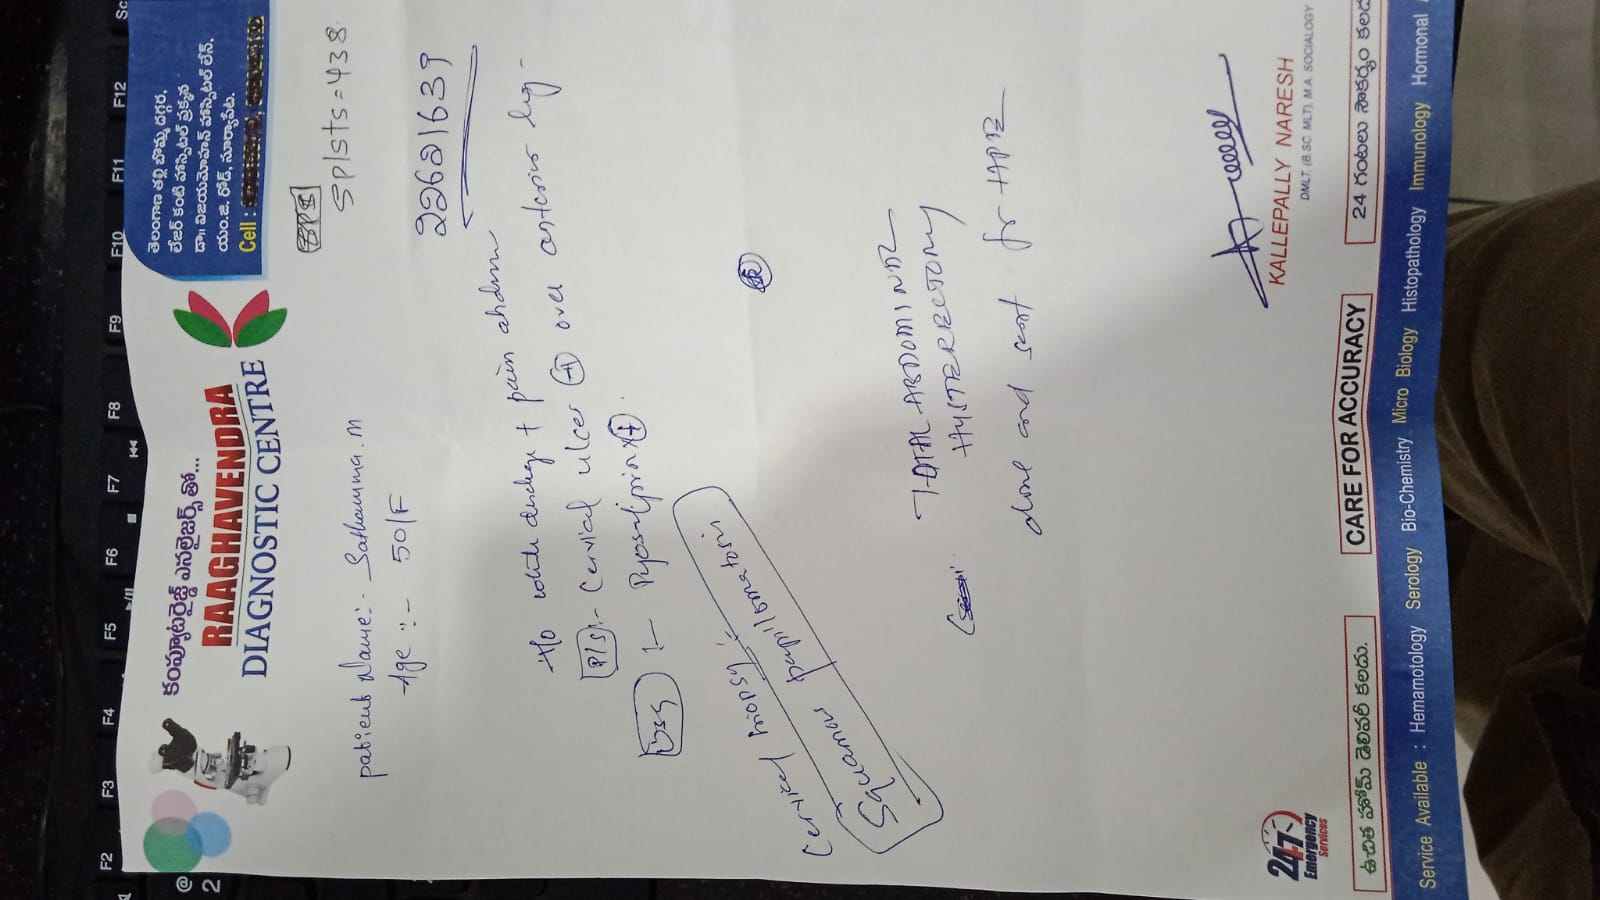 కంప్యూటరైజ్డ్ ఎనలైజర్స్ తో...
RAAGHAVENDRA
DIAGNOSTIC CENTRE
తెలంగాణ తల్లి బొమ్మ దగ్గర,
లేజర్ కంటి హాస్పిటల్ ప్రక్కన
డా॥ విజయమోహన్ హాస్పిటల్ లేన్,
యం.జి. రోడ్, సూర్యాపేట.
Cell :
Splsts=438
patient Name:- Sathamma.M
Age :- 50/F
22621639
H/o white discharge + pain abdmn
P/s:- Cervial ulcer + over anterior lip-
USG :- Pyosalpinx +
Cervical biopsy:-
Squamous papillomatosis
TOTAL ABDOMINAL
HYSTERECTOMY
done and sent for HPE
KALLEPALLY NARESH
DMLT, (B.SC. MLT), M.A. SOCIALOGY
24x7
Emergency
Services
ఉచిత హోమ్ డెలివరీ కలదు.
CARE FOR ACCURACY
24 గంటలు సౌకర్యం కలదు
Service Available : Hemamotology Serology Bio-Chemistry Micro Biology Histopathology Immunology Hormonal
@
2
F2
F3
F4
F5
F6
F7
F8
F9
F10
F11
F12
Sc